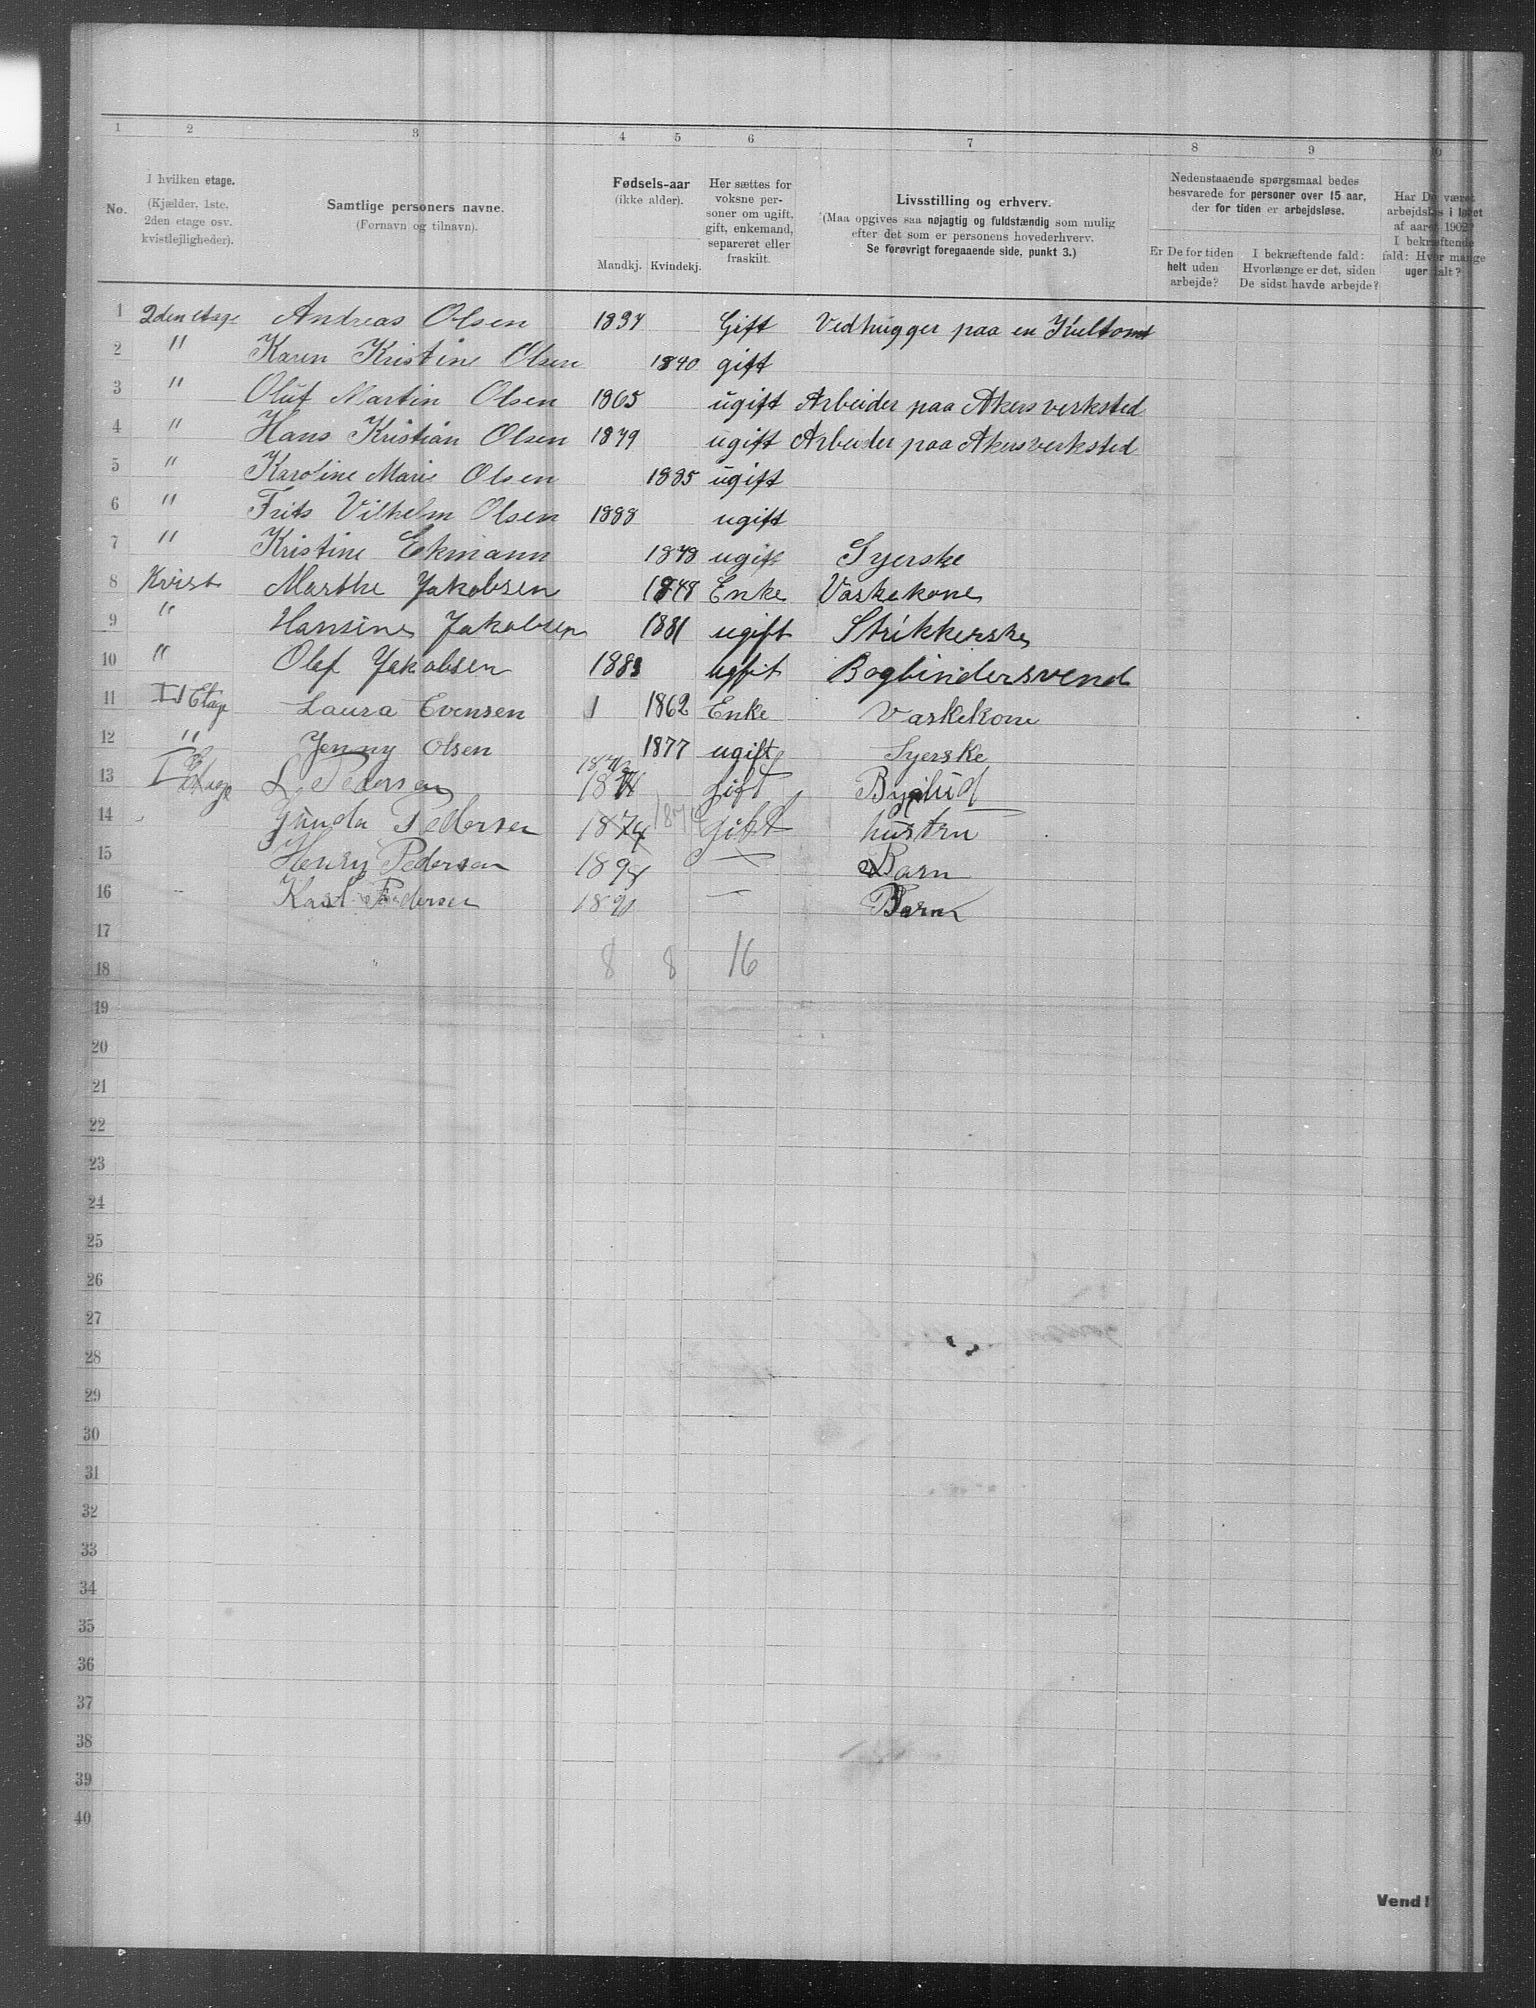 1 2 3 4 5 6 7 8 9 10
No.
I hvilken etage.
(Kjælder, 1ste,
2den etage osv.
kvistlejligheder).
Samtlige personers navne.
(Fornavn og tilnavn).
Fødsels-aar
(ikke alder).
Mandkj. Kvindekj.
Her sættes for
voksne per-
soner om ugift,
gift, enkemand,
separeret eller
fraskilt.
Livsstilling og erhverv.
(Maa opgives saa nøjagtig og fuldstændig som mulig
efter det som er personens hovederhverv.
Se forøvrigt foregaaende side, punkt 3.)
Nedenstaaende spørgsmaal bedes
besvarede for personer over 15 aar,
der for tiden er arbejdsløse.
Er De for tiden
helt uden
arbejde?
I bekræftende fald:
Hvorlænge er det, siden
De sidst havde arbejde?
Har De været
arbejdsløs i løbet
af aaret 1902?
I bekræftende
fald: Hvor mange
uger ialt?
1 2den etage Andreas Olsen 1834 Gift Vedhugger paa en Kultomt
2 " Karen Kristine Olsen 1840 gift
3 " Oluf Martin Olsen 1865 ugift Arbeider paa Akers verksted
4 " Hans Kristian Olsen 1879 ugift Arbeider paa Akers verksted
5 " Karoline Marie Olsen 1885 ugift
6 " Frits Vilhelm Olsen 1888 ugift
7 " Kristine Ekmann 1848 ugift Syerske
8 Kvist Marthe Jakobsen 1848 Enke Vaskekone
9 " Hansine Jakobsen 1881 ugift Strikkerske
10 " Olef Jakobsen 1883 ugift Bogbindersvend
11 II Etage Laura Evensen 1862 Enke Vaskekone
12 " Jenny Olsen 1877 ugift Syerske
13 I Etage L. Pedersen gift Bybud
14 Gunda Pedersen 1874 1874 Gift hustru
15 Henry Pedersen Barn
16 Karl Pedersen Barn
17
8 8 16
18
19
20
21
22
23
24
25
26
27
28
29
30
31
32
33
34
35
36
37
38
39
40
Vend!